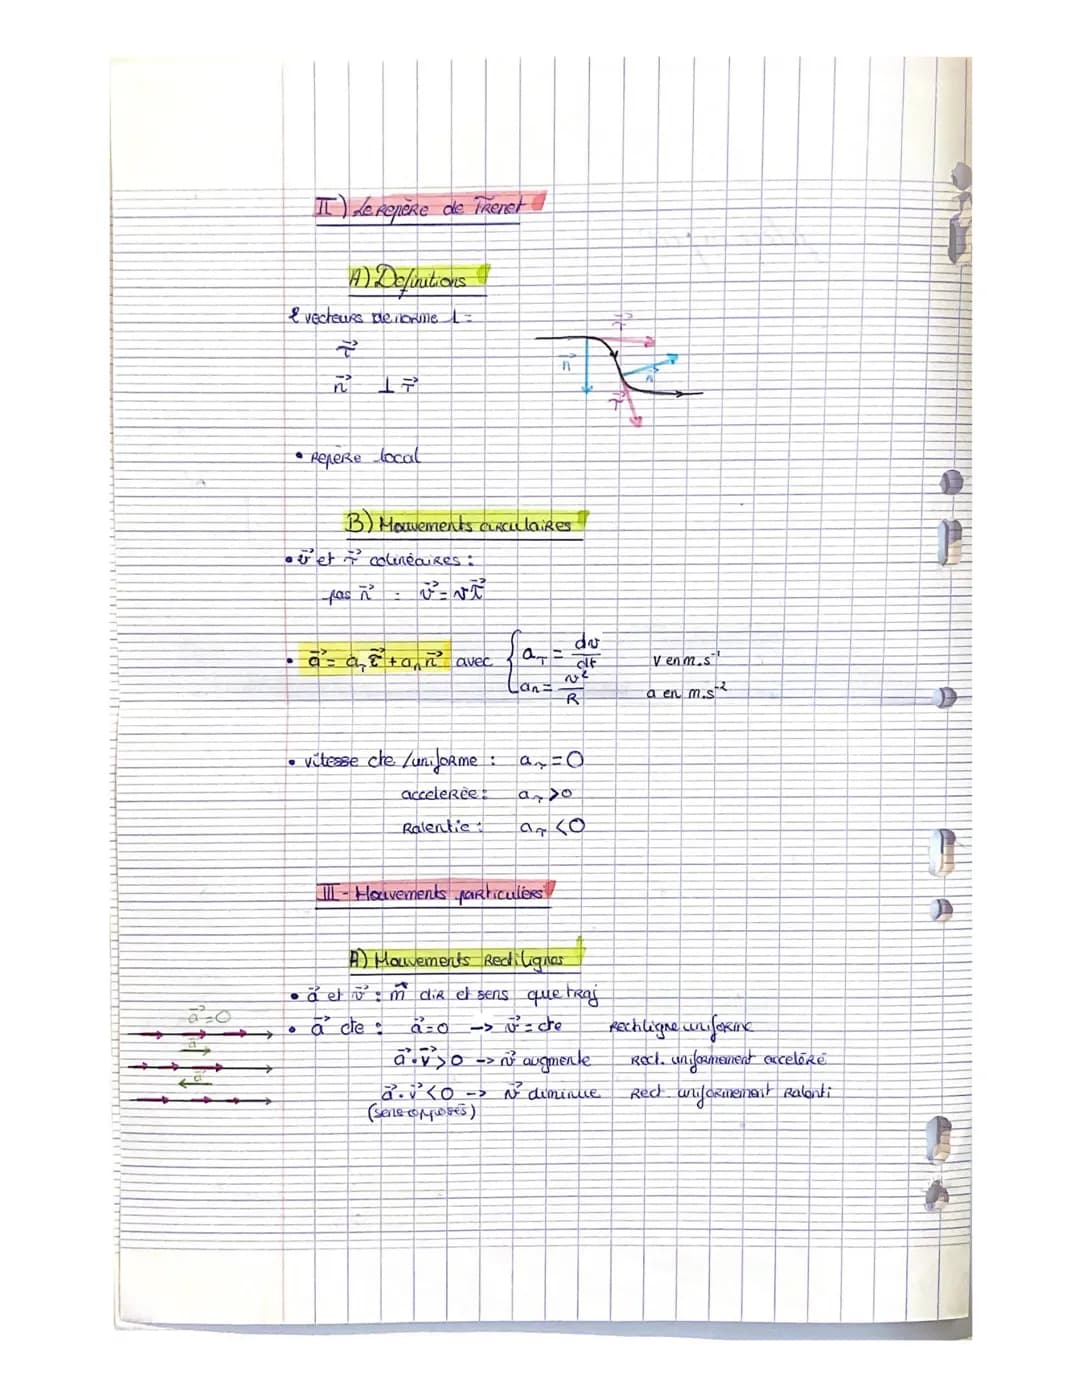 II) Le Repère de Frenet
A) Definitions
2 vecteurs de norme 1 =
τ⃗
n⃗ ⊥ τ⃗
τ⃗
n⃗
n⃗
τ⃗
• Repère local
B) Mouvements circulaires
• v⃗ et τ⃗ colinéaires :
pas n⃗ : v⃗ = vτ⃗
• a⃗ = a_τ τ⃗ + a_n n⃗ avec { a_τ = dv/dt v en m.s⁻¹
a_n = v²/R a en m.s⁻²
• vitesse cte /uniforme : a_τ = 0
accelerée : a_τ > 0
Ralentie : a_τ < 0
III - Mouvements particuliers
A) Mouvements Rectilignes
• a⃗ et v⃗ : m̂ dir et sens que traj
a⃗ = 0
• a⃗ cte : a⃗ = 0 -> v⃗ = cte Rectiligne uniforme
a⃗
a⃗.v⃗ > 0 -> v⃗ augmente Rect. uniformement acceléré
a⃗
a⃗.v⃗ < 0 -> v⃗ diminue Rect. uniformement Ralenti
(sens opposés)